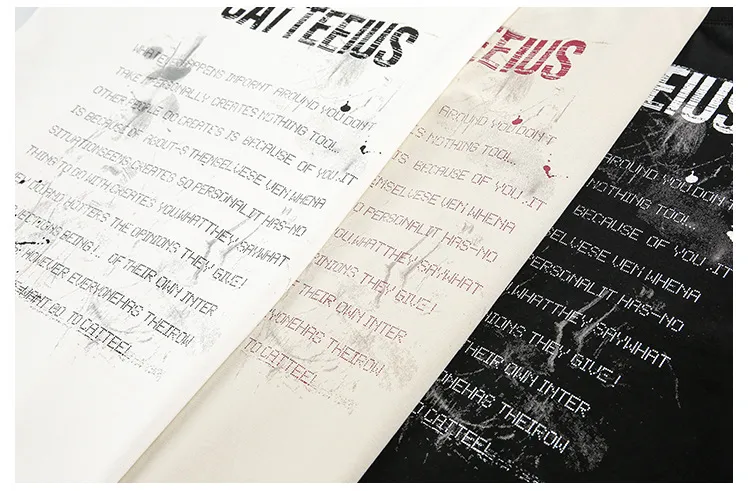 CATTEEIUS
TEEIUS
EEIUS
WHATEVER HAPPENS INFORANT AROUND YOU DON'T
TAKE PERSONALLY CREATES NOTHING TOOL...
OTHER PEOPLE DO CREATES IS BECAUSE OF YOU .IT
IS BECAUSE OF ABOUT-S THENSELVESE VEN WHENA
SITUATIONSEENS CREATES SO PERSONALIT HAS-NO
THING TO DO WITH CREATES YOU.WHATTHEY SAYWHAT
DO AND HOTTERS THE OPINIONS THEY GIVE!
BEING!.. OF THEIR OWN INTER
HOWEVER EVERYONEHAS THEIROW
WANT GO TO CATTEEL
AROUND YOU DON'T
S NOTHING TOOL...
IS BECAUSE OF YOU .IT
ENSELVESE VEN WHENA
O PERSONALIT HAS-NO
OU.WHATTHEY SAYWHAT
INIONS THEY GIVE!
THEIR OWN INTER
YONEHAS THEIROW
TO CATTEEL
AROUND YOU DON'T
NOTHING TOOL...
BECAUSE OF YOU .IT
SELVESE VEN WHENA
PERSONALIT HAS-NO
WHATTHEY SAYWHAT
IONS THEY GIVE!
HEIR OWN INTER
ONEHAS THEIROW
O CATTEEL